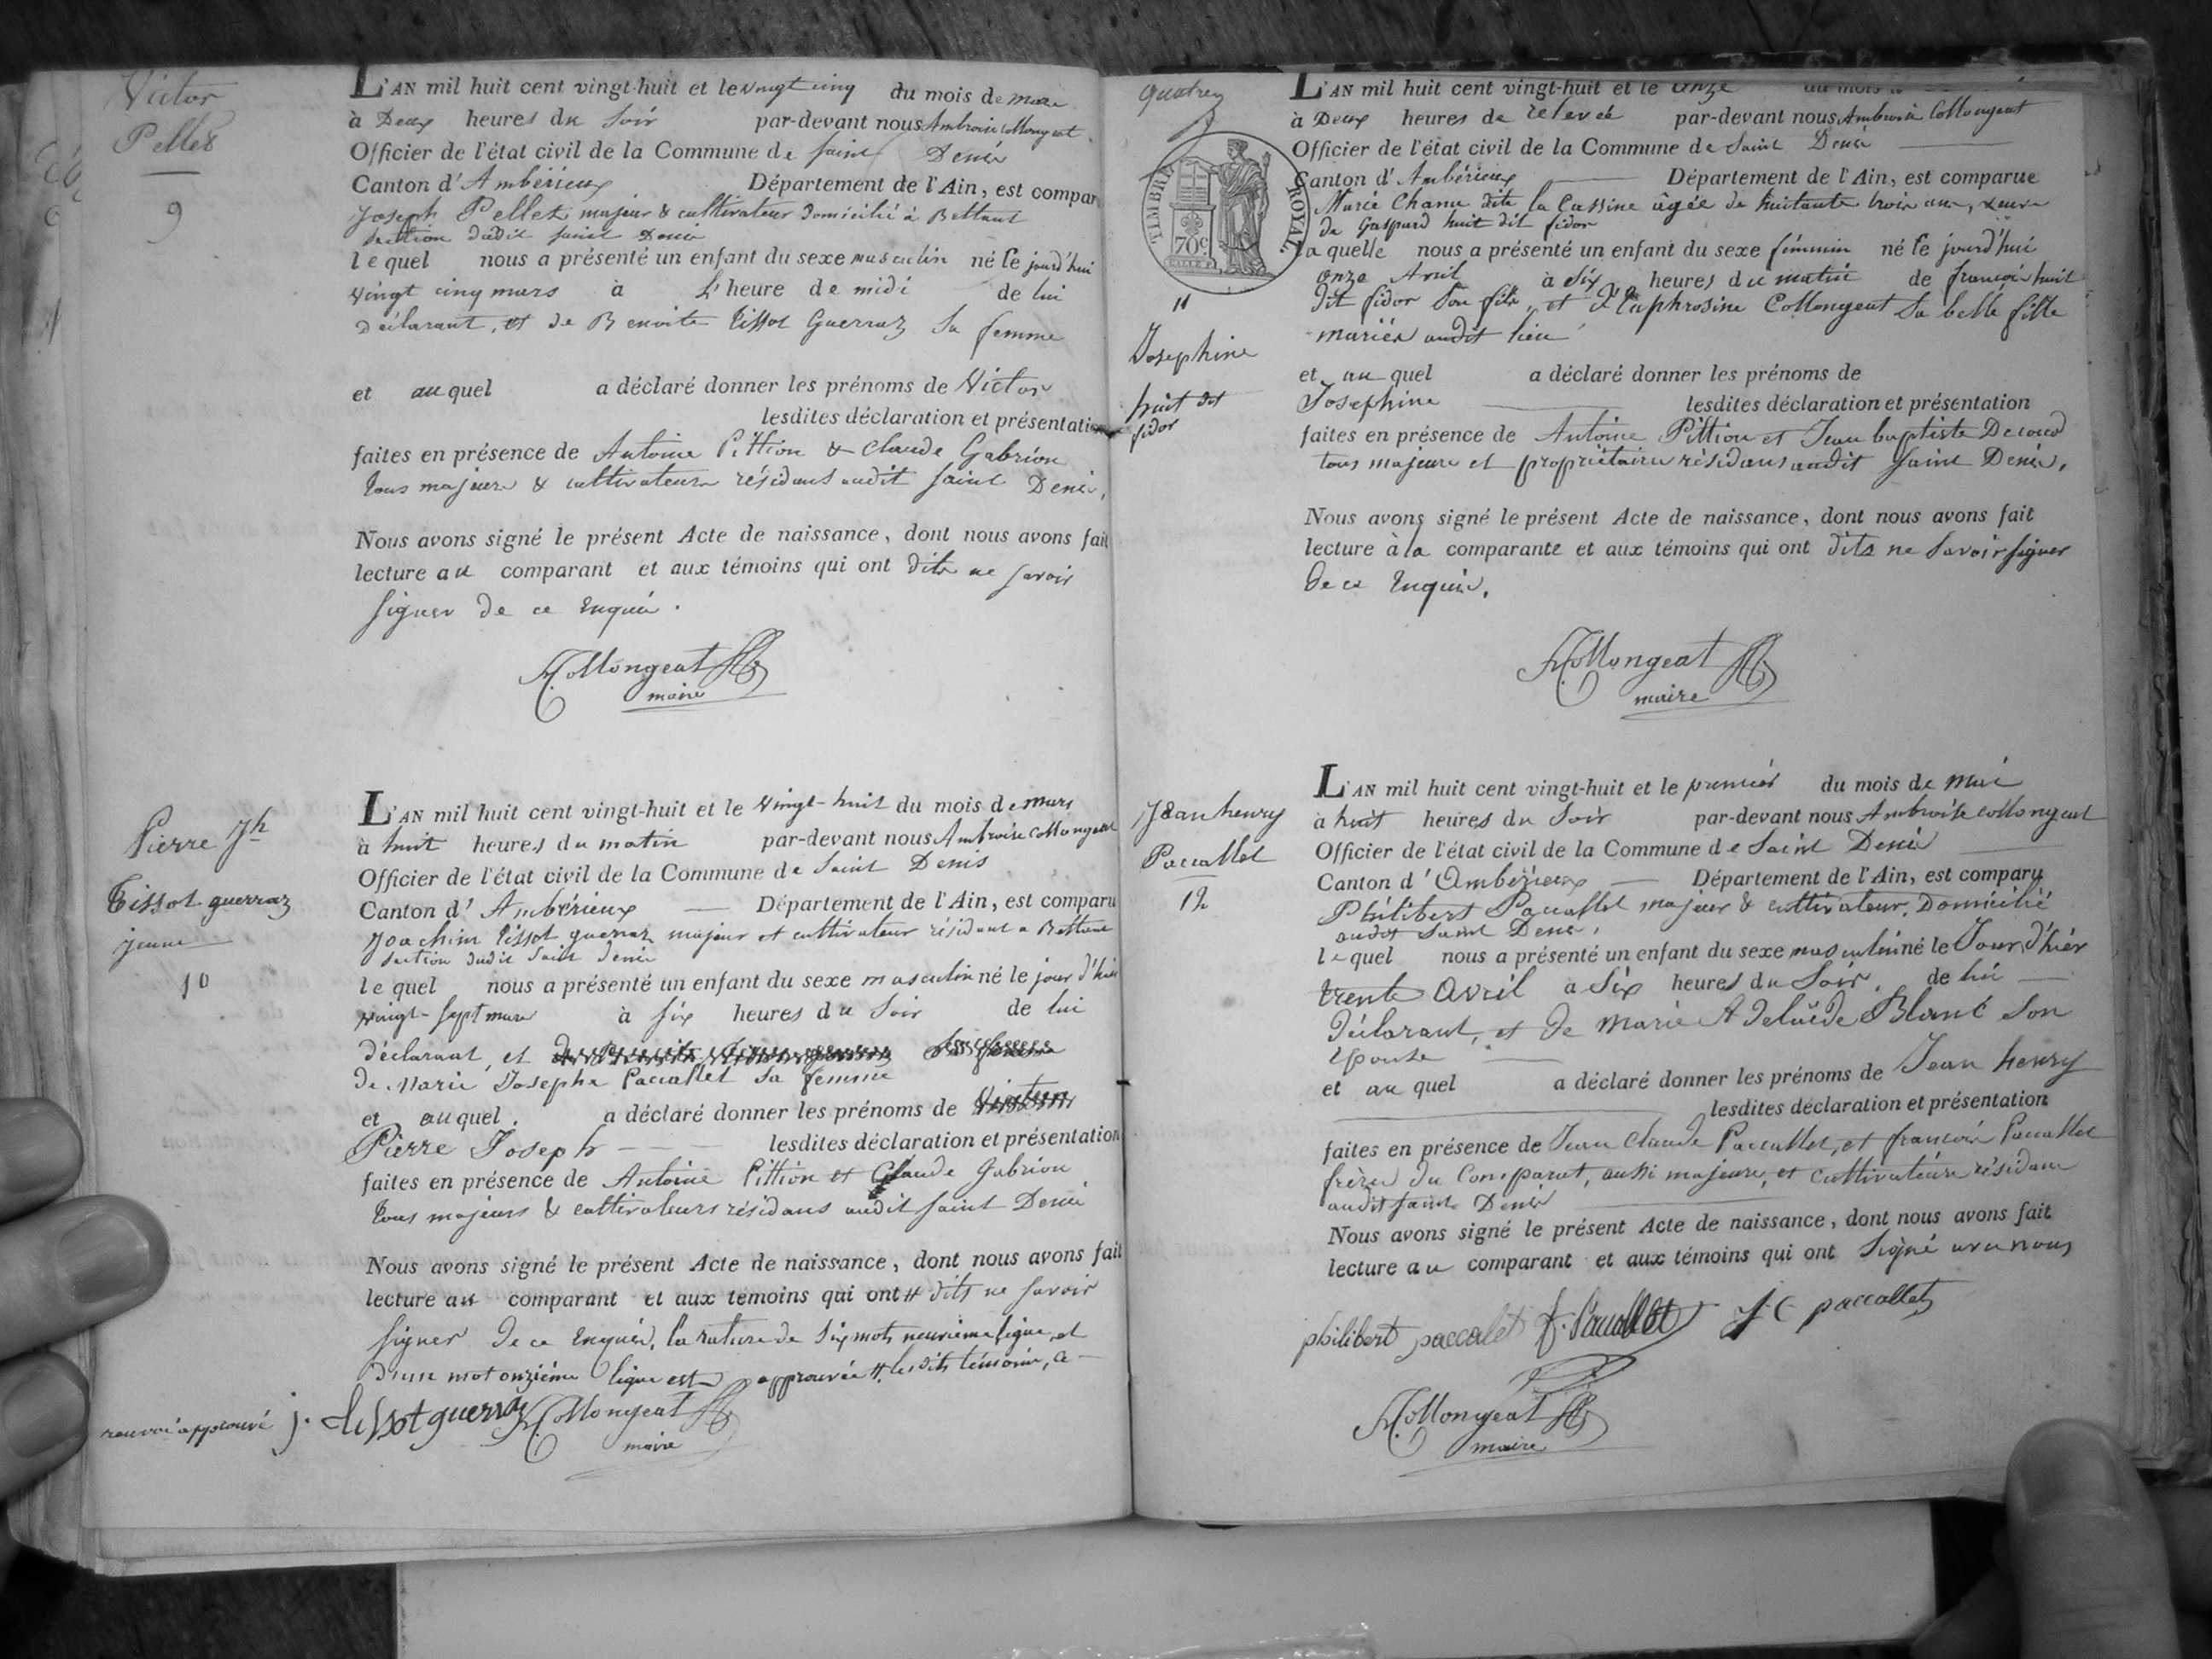 Victor
Pellet
9
L'AN mil huit cent vingt-huit et le vingt cinq du mois de mars
à Deux heures du Soir par-devant nous Ambroise Collongeat
Officier de l'état civil de la Commune de Saint Denis
Canton d'Ambérieux Département de l'Ain, est compar
Joseph Pellet majeur & cultivateur domicilié à Bettant
Section dudit Saint Denis
lequel nous a présenté un enfant du sexe masculin né le jourd'hui
vingt cinq mars à L'heure de midi de lui
déclarant, et de Benoite Tissot Guerraz Sa femme
et auquel a déclaré donner les prénoms de Victor
lesdites déclaration et présentation
faites en présence de Antoine Pittion & Claude Gabrion
tous majeurs & cultivateurs résidans audit Saint Denis,
Nous avons signé le présent Acte de naissance, dont nous avons fait
lecture au comparant et aux témoins qui ont dits ne savoir
signer de ce Enquis.
Collongeat
maire
Pierre Jh
Tissot guerraz
jeune
10
L'AN mil huit cent vingt-huit et le vingt-huit du mois de mars
à huit heures du matin par-devant nous Ambroise Collongeat
Officier de l'état civil de la Commune de Saint Denis
Canton d'Ambérieux Département de l'Ain, est comparu
Joachim Tissot guerraz majeur et cultivateur résidant a Bettant
Section dudit Saint Denis
lequel nous a présenté un enfant du sexe masculin né le jour d'hier
vingt-sept mars à six heures du Soir de lui
déclarant, et
de Marie Josephe Paccallet Sa femme
et auquel. a déclaré donner les prénoms de
Pierre Joseph lesdites déclaration et présentation
faites en présence de Antoine Pittion et Claude Gabrion
tous majeurs & cultivateurs résidans audit Saint Denis
Nous avons signé le présent Acte de naissance, dont nous avons fait
lecture au comparant et aux temoins qui ont # dits ne savoir
signer de ce Enquis. la rature de six mots neuvieme ligne et
d'un mot onzieme ligne est approuvée #. lesdits témoins, a
renvoi approuvé j. tissot guerraz Collongeat
maire
quatre
TIMBRE ROYAL
70c
11
Josephine
huit dit
fidor
L'AN mil huit cent vingt-huit et le Onze du mois
à Deux heures de relevée par-devant nous Ambroise Collongeat
Officier de l'état civil de la Commune de Saint Denis
Canton d'Ambérieux Département de l'Ain, est comparue
Marie Chanu dite la Cassine âgée de huitante trois ans, veuve
de Gaspard huit dit fidor
laquelle nous a présenté un enfant du sexe féminin né le jourd'hui
onze Avril à six heures du matin de françois huit
dit fidor Son fils, et d'Euphrosine Collongeat Sa belle fille
mariés audit lieu
et auquel a déclaré donner les prénoms de
Josephine lesdites déclaration et présentation
faites en présence de Antoine Pittion et Jean baptiste
tous majeurs et propriétaires résidans audit Saint Denis,
Nous avons signé le présent Acte de naissance, dont nous avons fait
lecture à la comparante et aux témoins qui ont dits ne Savoir signer
de ce Enquis.
Collongeat
maire
Jean henry
Paccallet
12
L'AN mil huit cent vingt-huit et le premier du mois de mai
à huit heures du Soir par-devant nous Ambroise Collongeat
Officier de l'état civil de la Commune de Saint Denis
Canton d'Ambérieux Département de l'Ain, est comparu
Philibert Paccallet majeur & cultivateur, Domicilié
audit Saint Denis,
lequel nous a présenté un enfant du sexe masculin né le Jour d'hier
trente Avril à Six heures du Soir. de lui
déclarant, et de Marie Adelaïde Blanc Son
épouse
et auquel a déclaré donner les prénoms de Jean henry
lesdites déclaration et présentation
faites en présence de Jean Claude Paccallet, et françois Paccallet
frères du Comparant, aussi majeurs, et cultivateurs résidans
audit Saint Denis
Nous avons signé le présent Acte de naissance, dont nous avons fait
lecture au comparant et aux témoins qui ont Signé avec nous
philibert paccalet f. Paccallet J C paccallet
Collongeat
maire